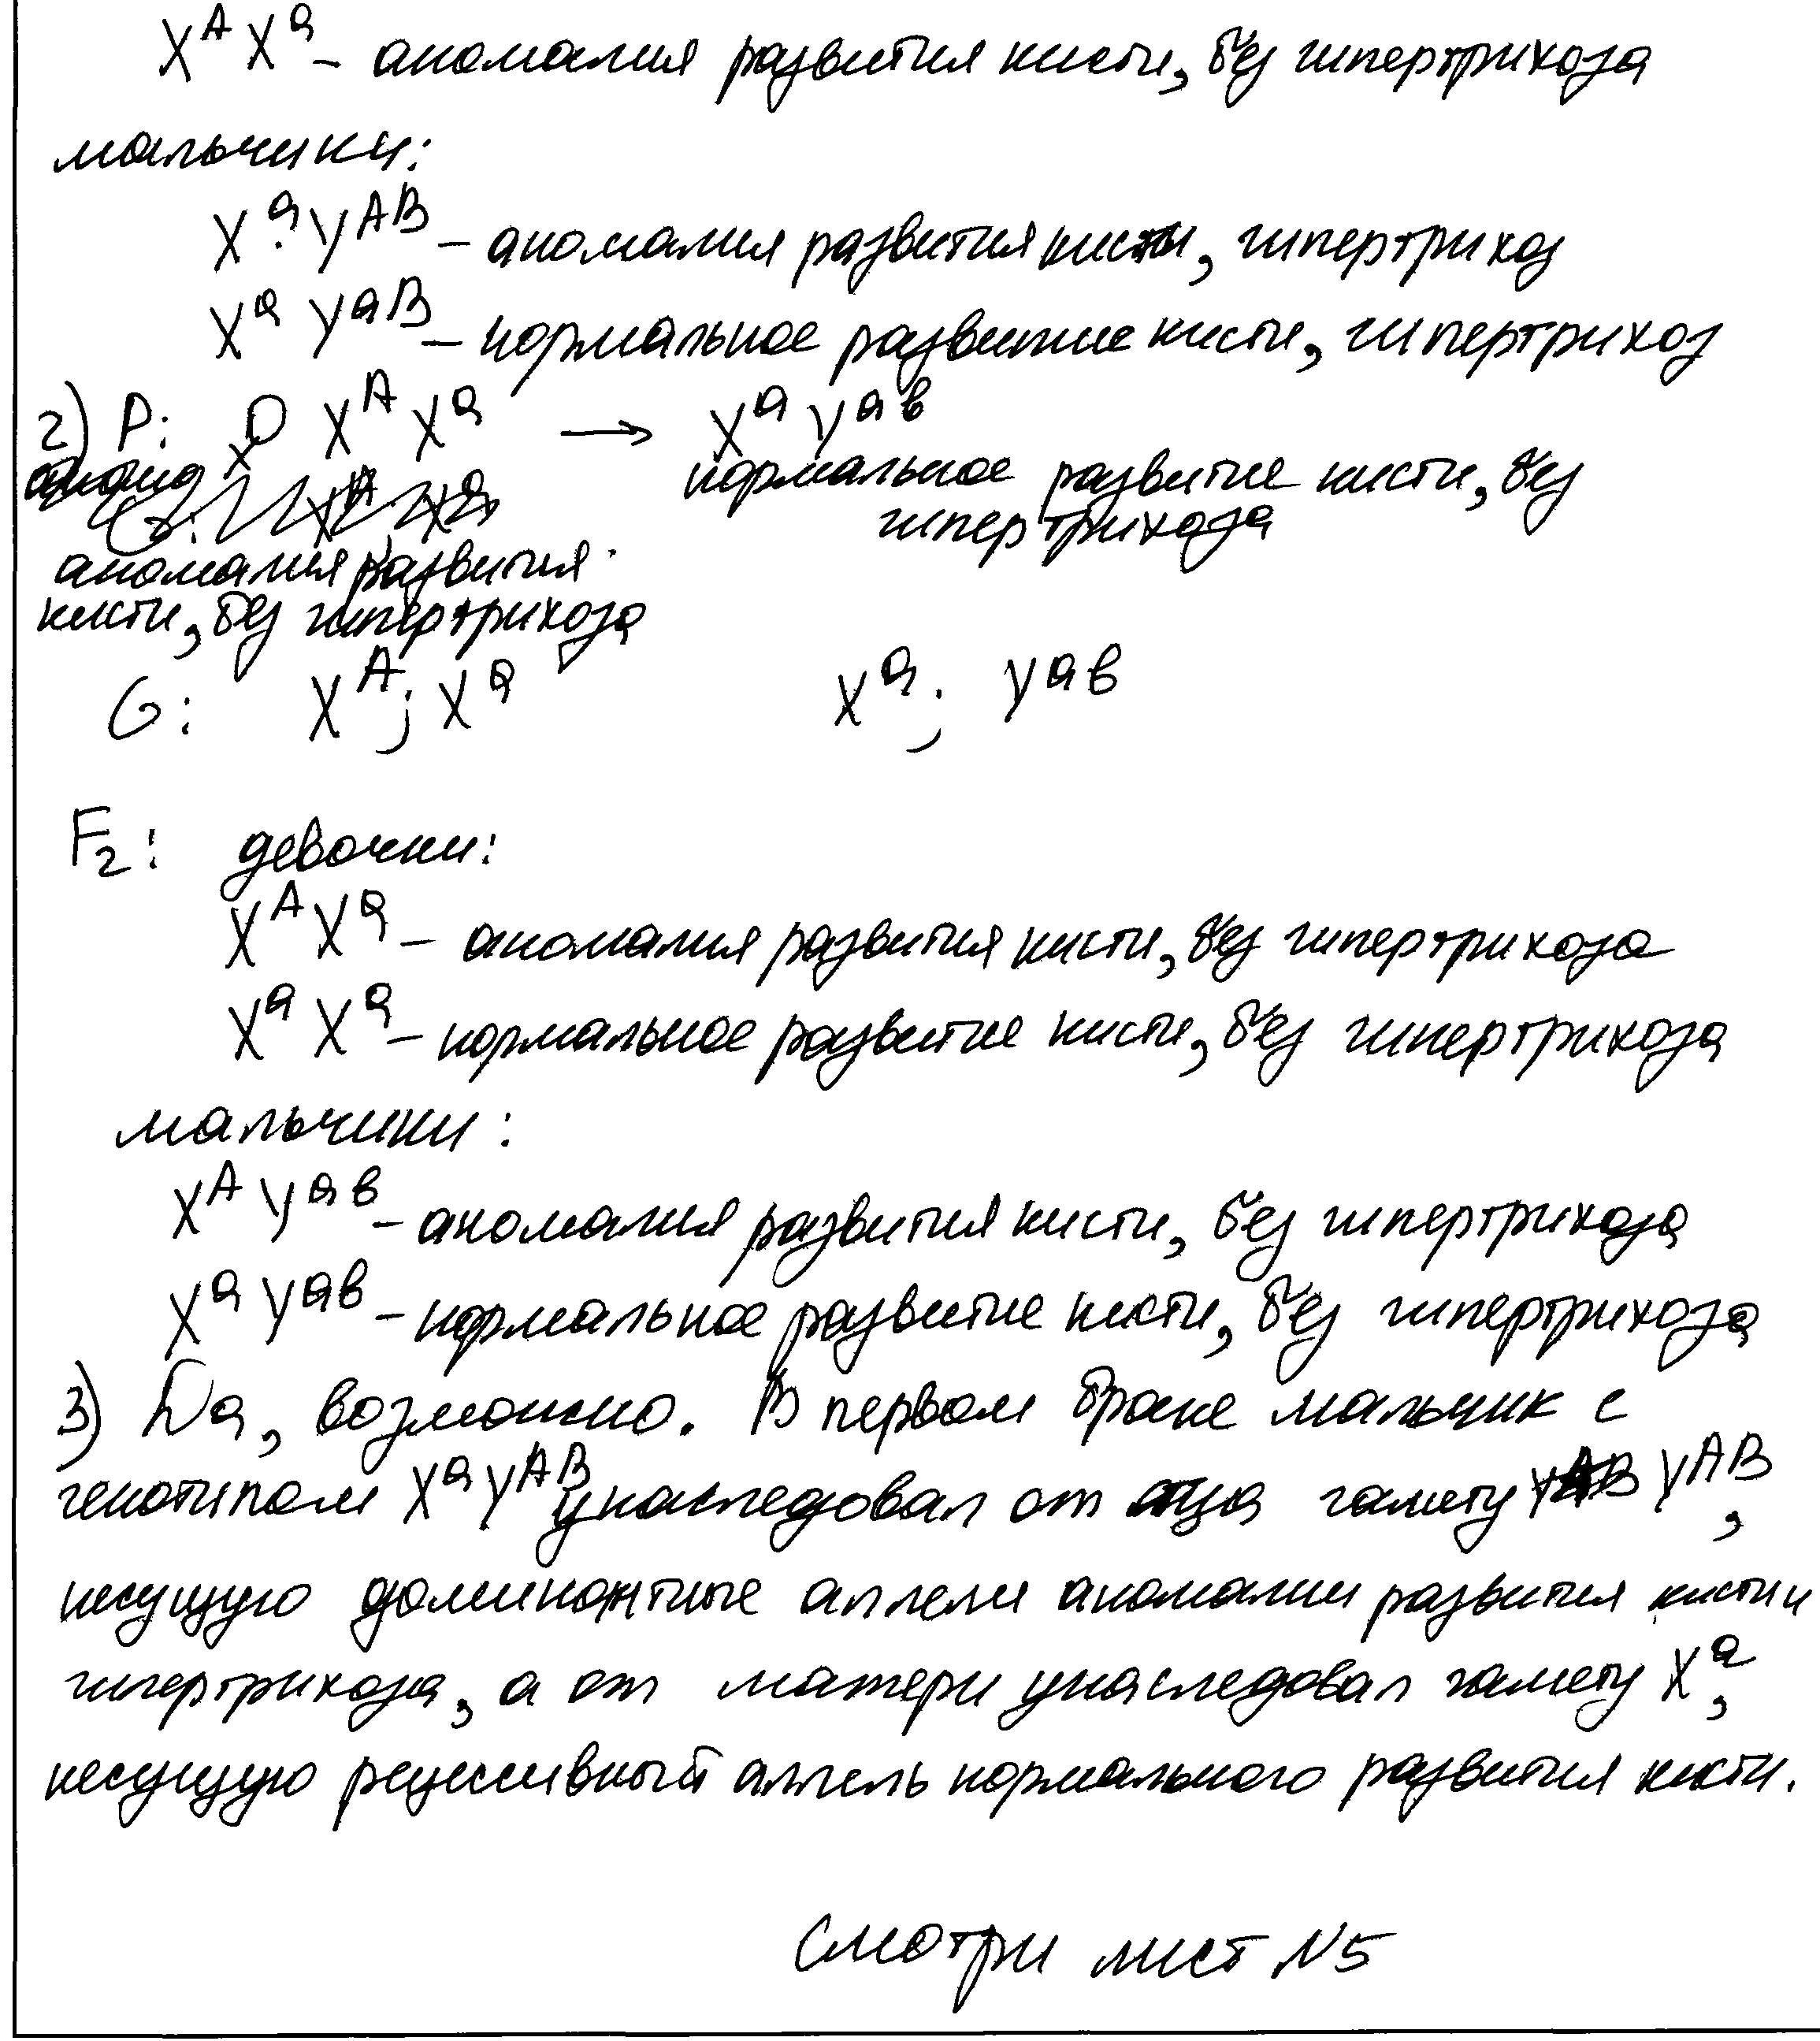 X^A X^a – аномалия развития кисти, без гипертрихоза
мальчики:
X^a Y^AB – аномалия развития кисти, гипертрихоз
X^a Y^aB – нормальное развитие кисти, гипертрихоз
2) P: ♀ X^A X^a → X^a Y^ab
нормальное развитие кисти, без
гипертрихоза
аномалия развития
кисти, без гипертрихоза
G: X^A; X^a X^a; Y^ab
F2: девочки:
X^A X^a – аномалия развития кисти, без гипертрихоза
X^a X^a – нормальное развитие кисти, без гипертрихоза
мальчики:
X^A Y^ab – аномалия развития кисти, без гипертрихоза
X^a Y^ab – нормальное развитие кисти, без гипертрихоза
3) Да, возможно. В первом браке мальчик с
генотипом X^a Y^AB унаследовал от отца гамету Y^AB,
несущую доминантные аллели аномалии развития кисти и
гипертрихоза, а от матери унаследовал гамету X^a,
несущую рецессивный аллель нормального развития кисти.
Смотри лист N5